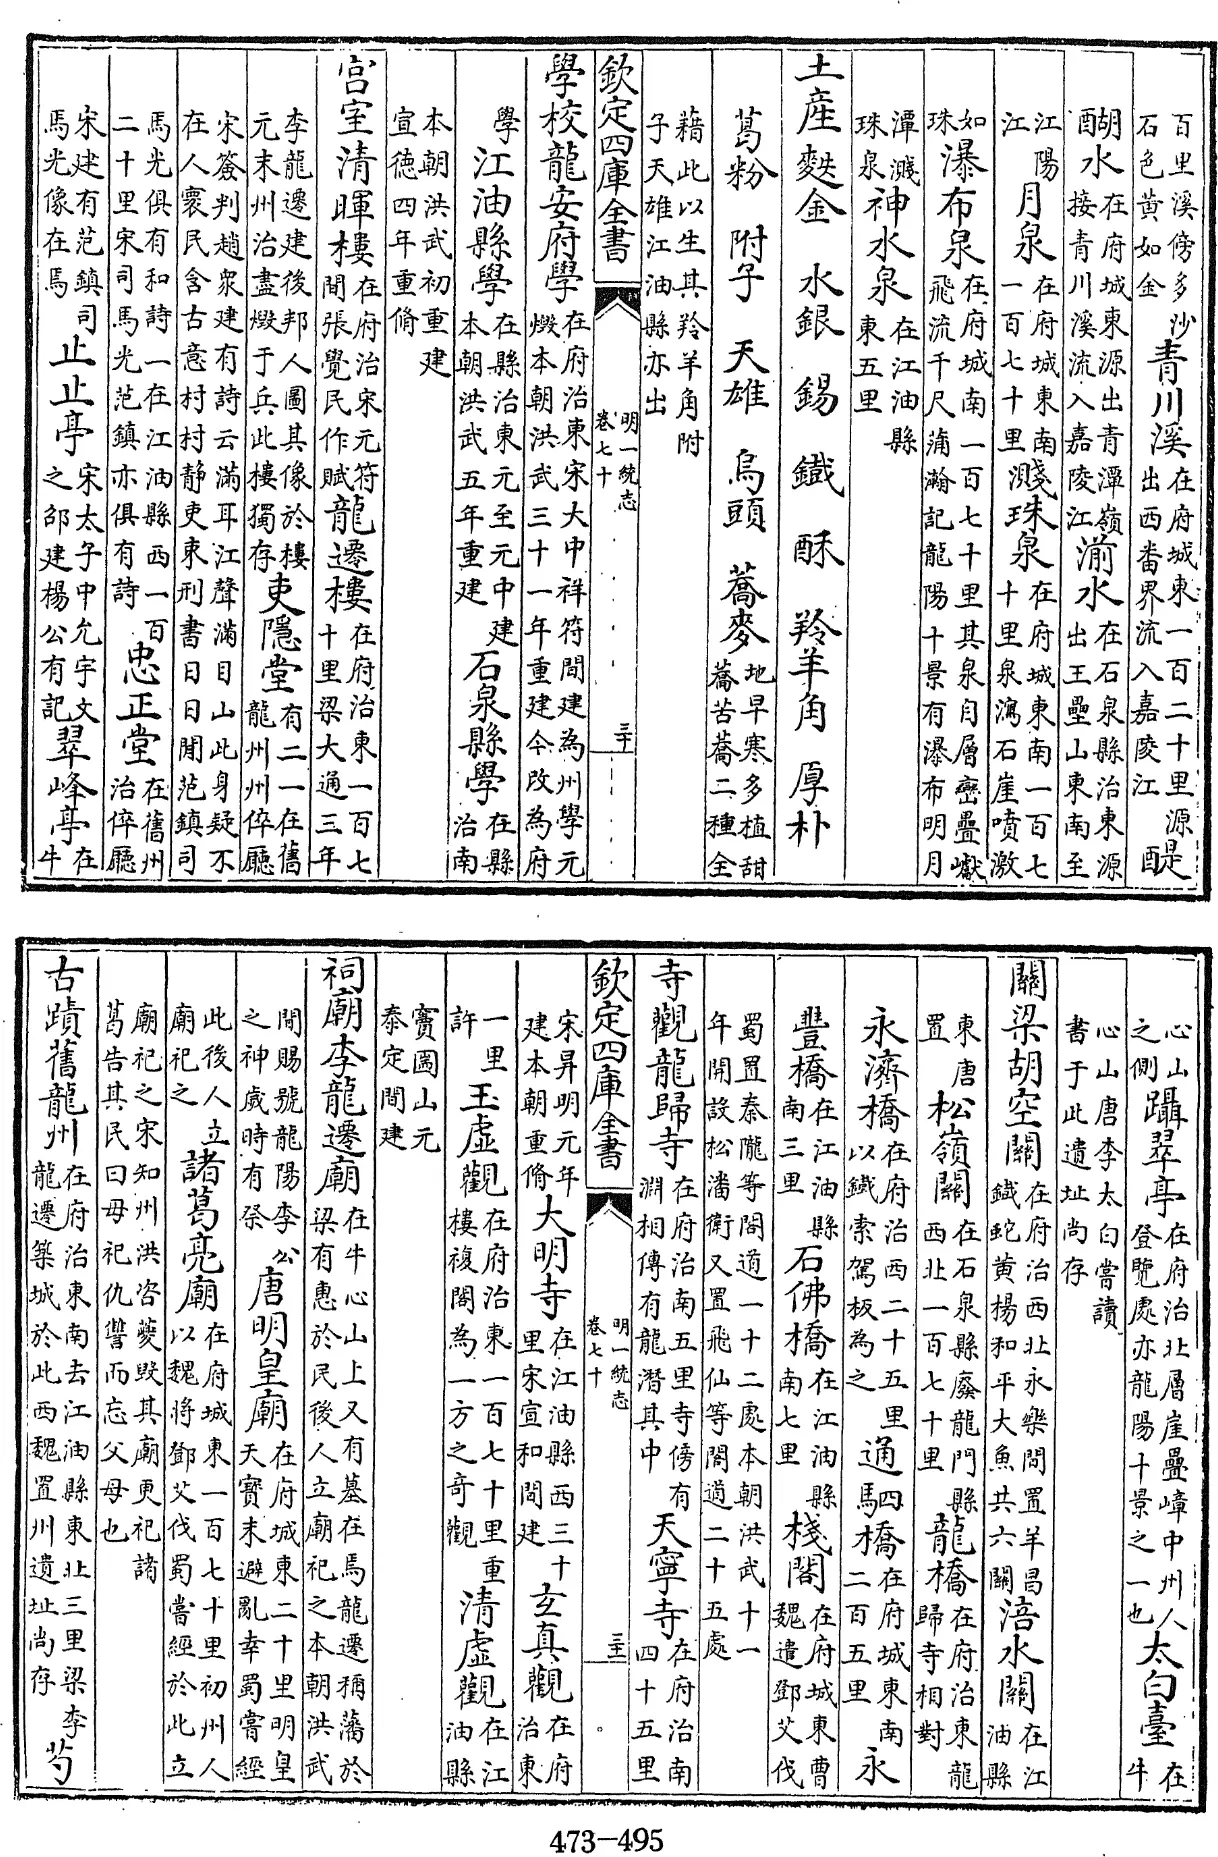 百里溪傍多沙石色黄如金青川溪在府城東一百二十里源出西畨界流入嘉陵江醍
醐水在府城東源出青潭嶺接青川溪流入嘉陵江湔水在石泉縣治東源出玉壘山東南至
江陽江月泉在府城東南一百七十里濺珠泉在府城東南一百七十里泉瀉石崖噴激
如珠瀑布泉在府城南一百七十里其泉自層巒疊巘飛流千尺蒲瀚記龍陽十景有瀑布明月
潭濺珠泉神水泉在江油縣東五里
土産麩金 水銀 錫 鐵 酥 羚羊角 厚朴
葛粉 附子 天雄 烏頭 蕎麥地早寒多植甜蕎苦蕎二種全
藉此以生其羚羊角附子天雄江油縣亦出
欽定四庫全書 明一統志卷七十 三十
學校龍安府學在府治東宋大中祥符間建為州學元燬本朝洪武三十一年重建今改為府
學江油縣學在縣治東元至元中建本朝洪武五年重建石泉縣學在縣治南
本朝洪武初重建宣德四年重脩
宫室清暉樓在府治宋元符間張覺民作賦龍遷樓在府治東一百七十里梁大通三年
李龍遷建後邦人圖其像於樓元末州治盡燬于兵此樓獨存吏隱堂有二一在舊龍州州倅廳
宋簽判趙衆建有詩云滿耳江聲滿目山此身疑不在人寰民含古意村村静吏束刑書日日閒范鎮司
馬光俱有和詩一在江油縣西一百二十里宋司馬光范鎮亦俱有詩忠正堂在舊州治倅廳
宋建有范鎮司馬光像在焉止止亭宋太子中允宇文之邵建楊公有記翠峰亭在牛
心山之側躡翠亭在府治北層崖疊嶂中州人登覽處亦龍陽十景之一也太白臺在牛
心山唐李太白嘗讀書于此遺址尚存
關梁胡空關在府治西北永樂間置羊昌鐵蛇黄楊和平大魚共六關涪水關在江油縣
東唐置松嶺關在石泉縣廢龍門縣西北一百七十里龍橋在府治東龍歸寺相對
永濟橋在府治西二十五里以鐵索駕板為之通駟橋在府城東南二百五里永
豐橋在江油縣南三里石佛橋在江油縣南七里棧閣在府城東曹魏遣鄧艾伐
蜀置秦隴等閣道一十二處本朝洪武十一年開設松潘衛又置飛仙等閣道二十五處
寺觀龍歸寺在府治南五里寺傍有淵相傳有龍潛其中天寧寺在府治南四十五里
欽定四庫全書 明一統志卷七十 三十一
宋昇明元年建本朝重脩大明寺在江油縣西三十里宋宣和間建玄真觀在府治東
一里許玉虛觀在府治東一百七十里重樓複閣為一方之奇觀清虛觀在江油縣
竇圌山元泰定間建
祠廟李龍遷廟在牛心山上又有墓在焉龍遷稱藩於梁有惠於民後人立廟祀之本朝洪武
間賜號龍陽李公之神歲時有祭唐明皇廟在府城東二十里明皇天寳末避亂幸蜀嘗經
此後人立廟祀之諸葛亮廟在府城東一百七十里初州人以魏將鄧艾伐蜀嘗經於此立
廟祀之宋知州洪咨夔毁其廟更祀諸葛告其民曰毋祀仇讐而忘父母也
古蹟舊龍州在府治東南去江油縣東北三里梁李龍遷築城於此西魏置州遺址尚存芍
473-495